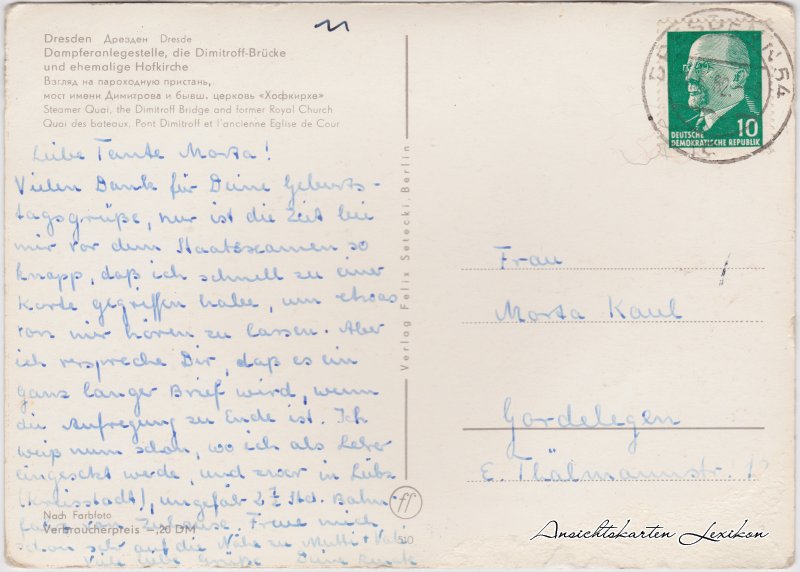 Dresden Дрезден Dresde
Dampferanlegestelle, die Dimitroff-Brücke
und ehemalige Hofkirche
Взгляд на пароходную пристань,
мост имени Димитрова и бывш. церковь «Хофкирхе»
Steamer Quai, the Dimitroff Bridge and former Royal Church
Quai des bateaux, Pont Dimitroff et l'ancienne Eglise de Cour
Liebe Tante Marta!
Vielen Dank für Deine Geburts-
tagsgrüße, nur ist die Zeit bei
mir vor dem Staatsexamen so
knapp, daß ich schnell zu einer
Karte gegriffen habe, um etwas
von mir hören zu lassen. Aber
ich verspreche Dir, daß es ein
ganz langer Brief wird, wenn
die Aufregung zu Ende ist. Ich
weiß nun schon, wo ich als Lehrer
eingesetzt werde, und zwar in Lübz
(Kreisstadt), ungefähr 2 ½ Std. Bahn-
fahrt von Zuhause. Freue mich
schon sehr auf die Nähe zu Mutti + Vati.
Viele liebe Grüße Deine
Nach Farbfoto
Verbraucherpreis —,20 DM
510
Verlag Felix Setecki, Berlin
ff
DRESDEN 54
10
DEUTSCHE
DEMOKRATISCHE REPUBLIK
Frau
Marta Kaul
Gardelegen
E. Thälmannstr.
Ansichtskarten Lexikon